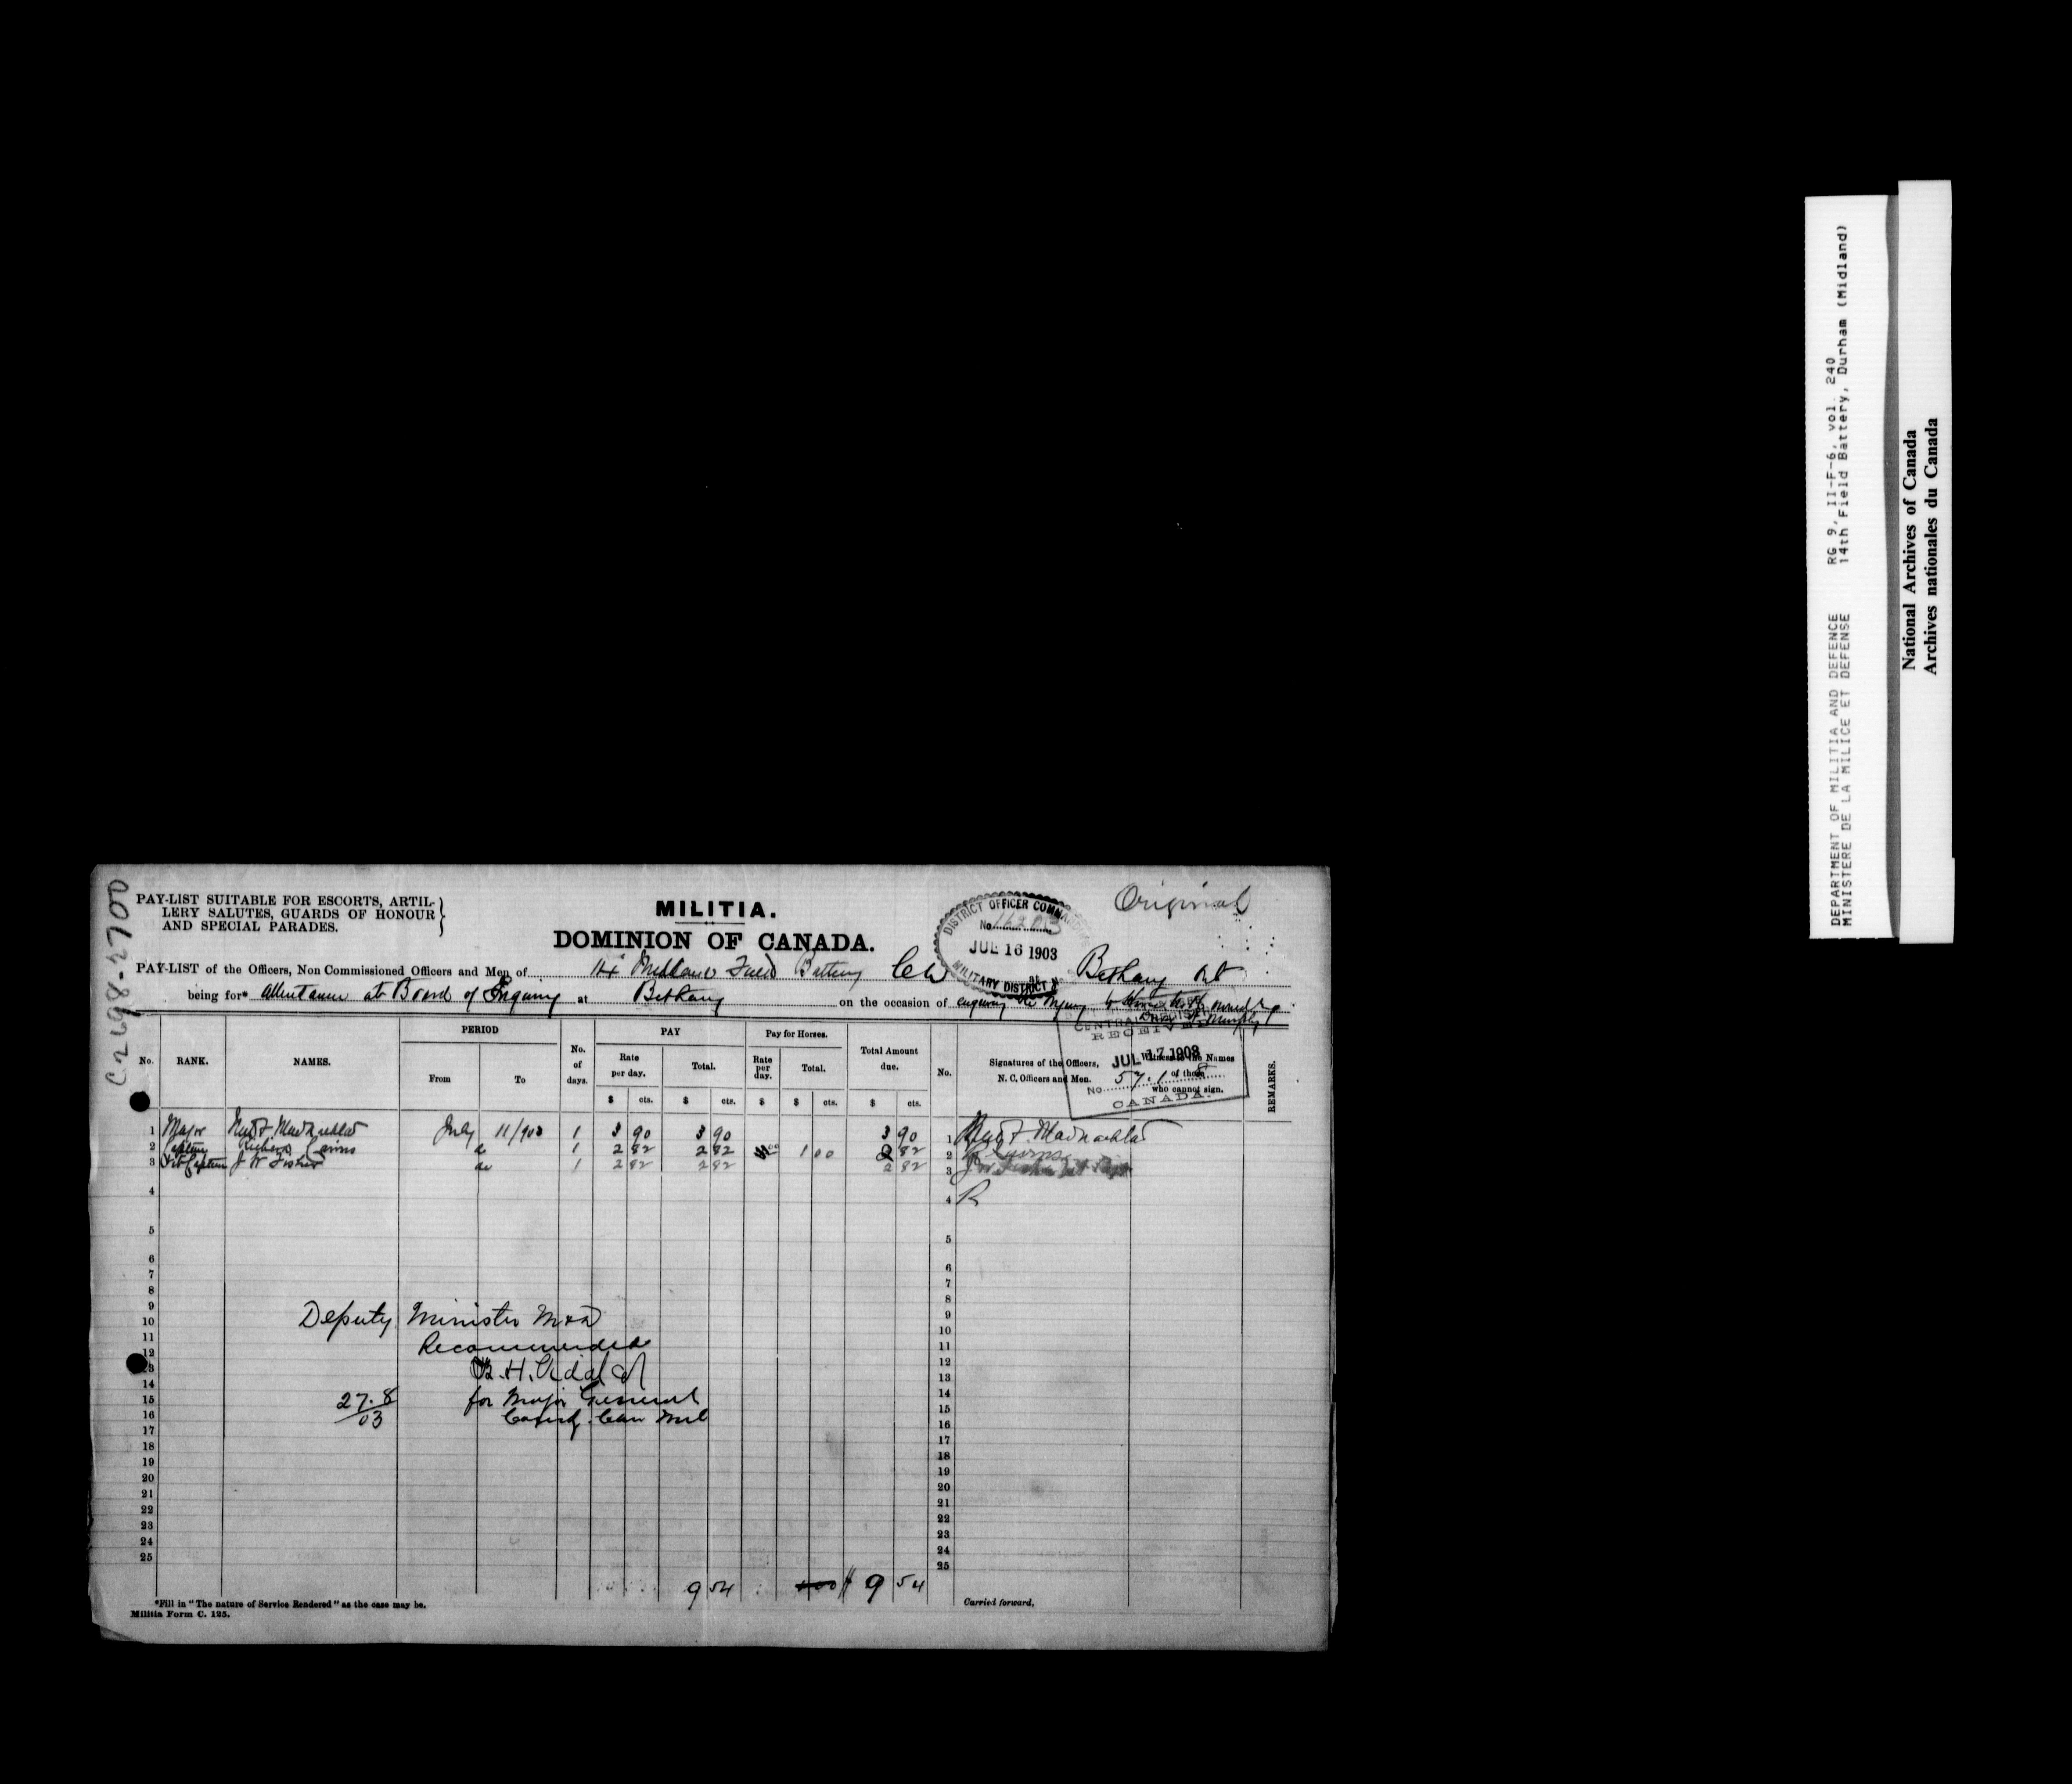 C 2698-2700
PAY-LIST SUITABLE FOR ESCORTS, ARTIL-
LERY SALUTES, GUARDS OF HONOUR
AND SPECIAL PARADES.
MILITIA.
DOMINION OF CANADA.
DISTRICT OFFICER COMMANDING
No.
JUL 16 1903
MILITARY DISTRICT
Original
PAY-LIST of the Officers, Non Commissioned Officers and Men of Field Battery at Bethany
being for* Attendance at Board of Enquiry at Bethany on the occasion of enquiring injury
RECEIVED
JUL 17 1903
No.
CANADA.
No. RANK. NAMES. PERIOD From To No. of days. PAY Rate per day. Total. Pay for Horses. Rate per day. Total. Total Amount due. No. Signatures of the Officers, N. C. Officers and Men. Witness to the Names of those who cannot sign. REMARKS.
$ cts. $ cts. $ $ cts. $ cts.
1 Major July 11/903 1 3 90 3 90 3 90 1
2 Captain Richard Cairns 1 2 82 2 82 1 00 2 82 2
3 Captain J W Fisher 1 2 82 2 82 2 82 3
4 4 R
5 5
6 6
7 7
8 8
9 9
10 Deputy Minister M & D 10
11 Recommended 11
12 B. H. Vidal 12
13 13
14 for Major General 14
15 27.8 15
16 03 Can Mil 16
17 17
18 18
19 19
20 20
21 21
22 22
23 23
24 24
25 25
9 54 $ 9 54
*Fill in "The nature of Service Rendered" as the case may be.
Militia Form C. 125.
Carried forward,
DEPARTMENT OF MILITIA AND DEFENCE RG 9, II-F-6, vol. 240
MINISTERE DE LA MILICE ET DEFENSE 14th Field Battery, Durham (Midland)
National Archives of Canada
Archives nationales du Canada